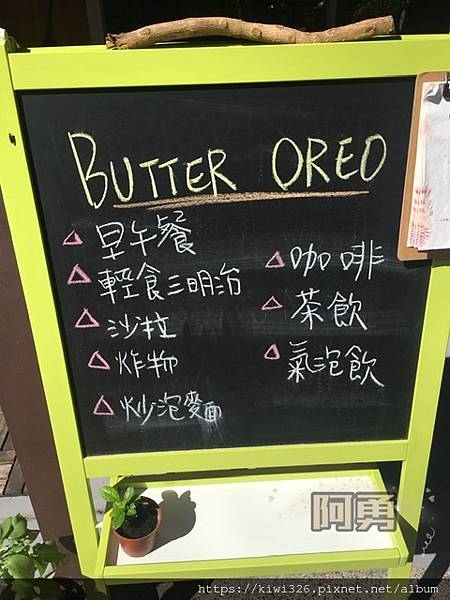 BUTTER OREO
△ 早午餐
△ 輕食三明治
△ 沙拉
△ 炸物
△ 炒泡麵
△ 咖啡
△ 茶飲
△ 氣泡飲
阿勇
https://kiwi326.pixnet.net/album